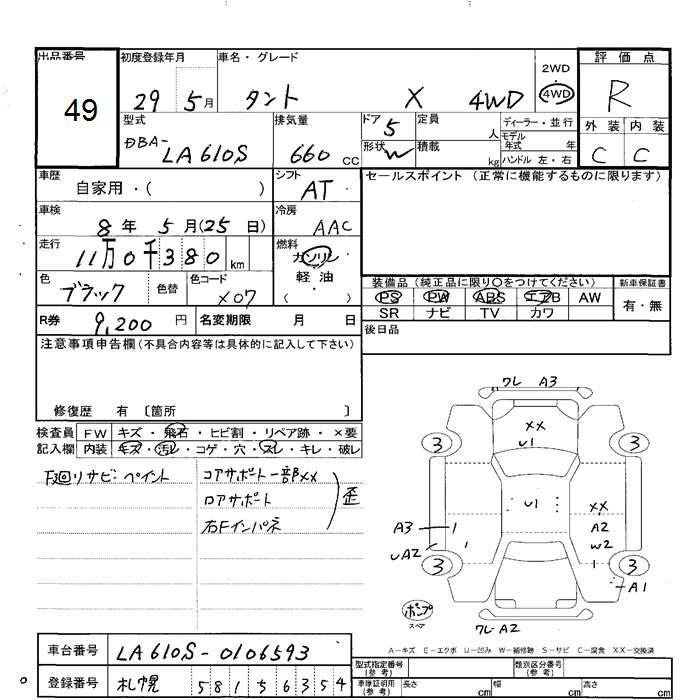 出品番号 初度登録年月 車名・グレード 2WD 評価点
49 29 5月 タント X 4WD 4WD R
型式 排気量 ドア 定員 ディーラー・並行 外装 内装
DBA- LA610S 660 CC 5 人 モデル年式 年 C C
形状 W 積載 kg ハンドル 左・右
車歴 シフト セールスポイント (正常に機能するものに限ります)
自家用・( ) AT
車検 冷房
8年 5月(25日) AAC
走行 燃料
11万0千380 km ガソリン
色 色替 色コード 軽油
ブラック X07 ( )
装備品 (純正品に限り〇をつけてください) 新車保証書
PS PW ABS エアB AW 有・無
SR ナビ TV カワ
R券 9,200 円 名変期限 月 日 後日品
注意事項申告欄(不具合内容等は具体的に記入して下さい)
修復歴 有 〔箇所 〕
検査員 FW キズ・飛石・ヒビ割・リペア跡・×要
記入欄 内装 キズ・汚レ・コゲ・穴・スレ・キレ・破レ
下廻りサビ・ペイント コアサポート一部××
ロアサポート 歪
右Fインパネ
ワレ A3
XX
U1
3 3
U1 XX
A3 A2
UA2 W2
3 3
A1
ポンプ
スペア
ワレA2
A-キズ E-エクボ U-凹み W-補修跡 S-サビ C-腐食 XX-交換済
車台番号 LA610S-0106593
登録番号 札幌 581 5 6354
型式指定番号 (参考) 類別区分番号 (参考)
車庫証明用 (参考) 長さ cm 幅 cm 高さ cm